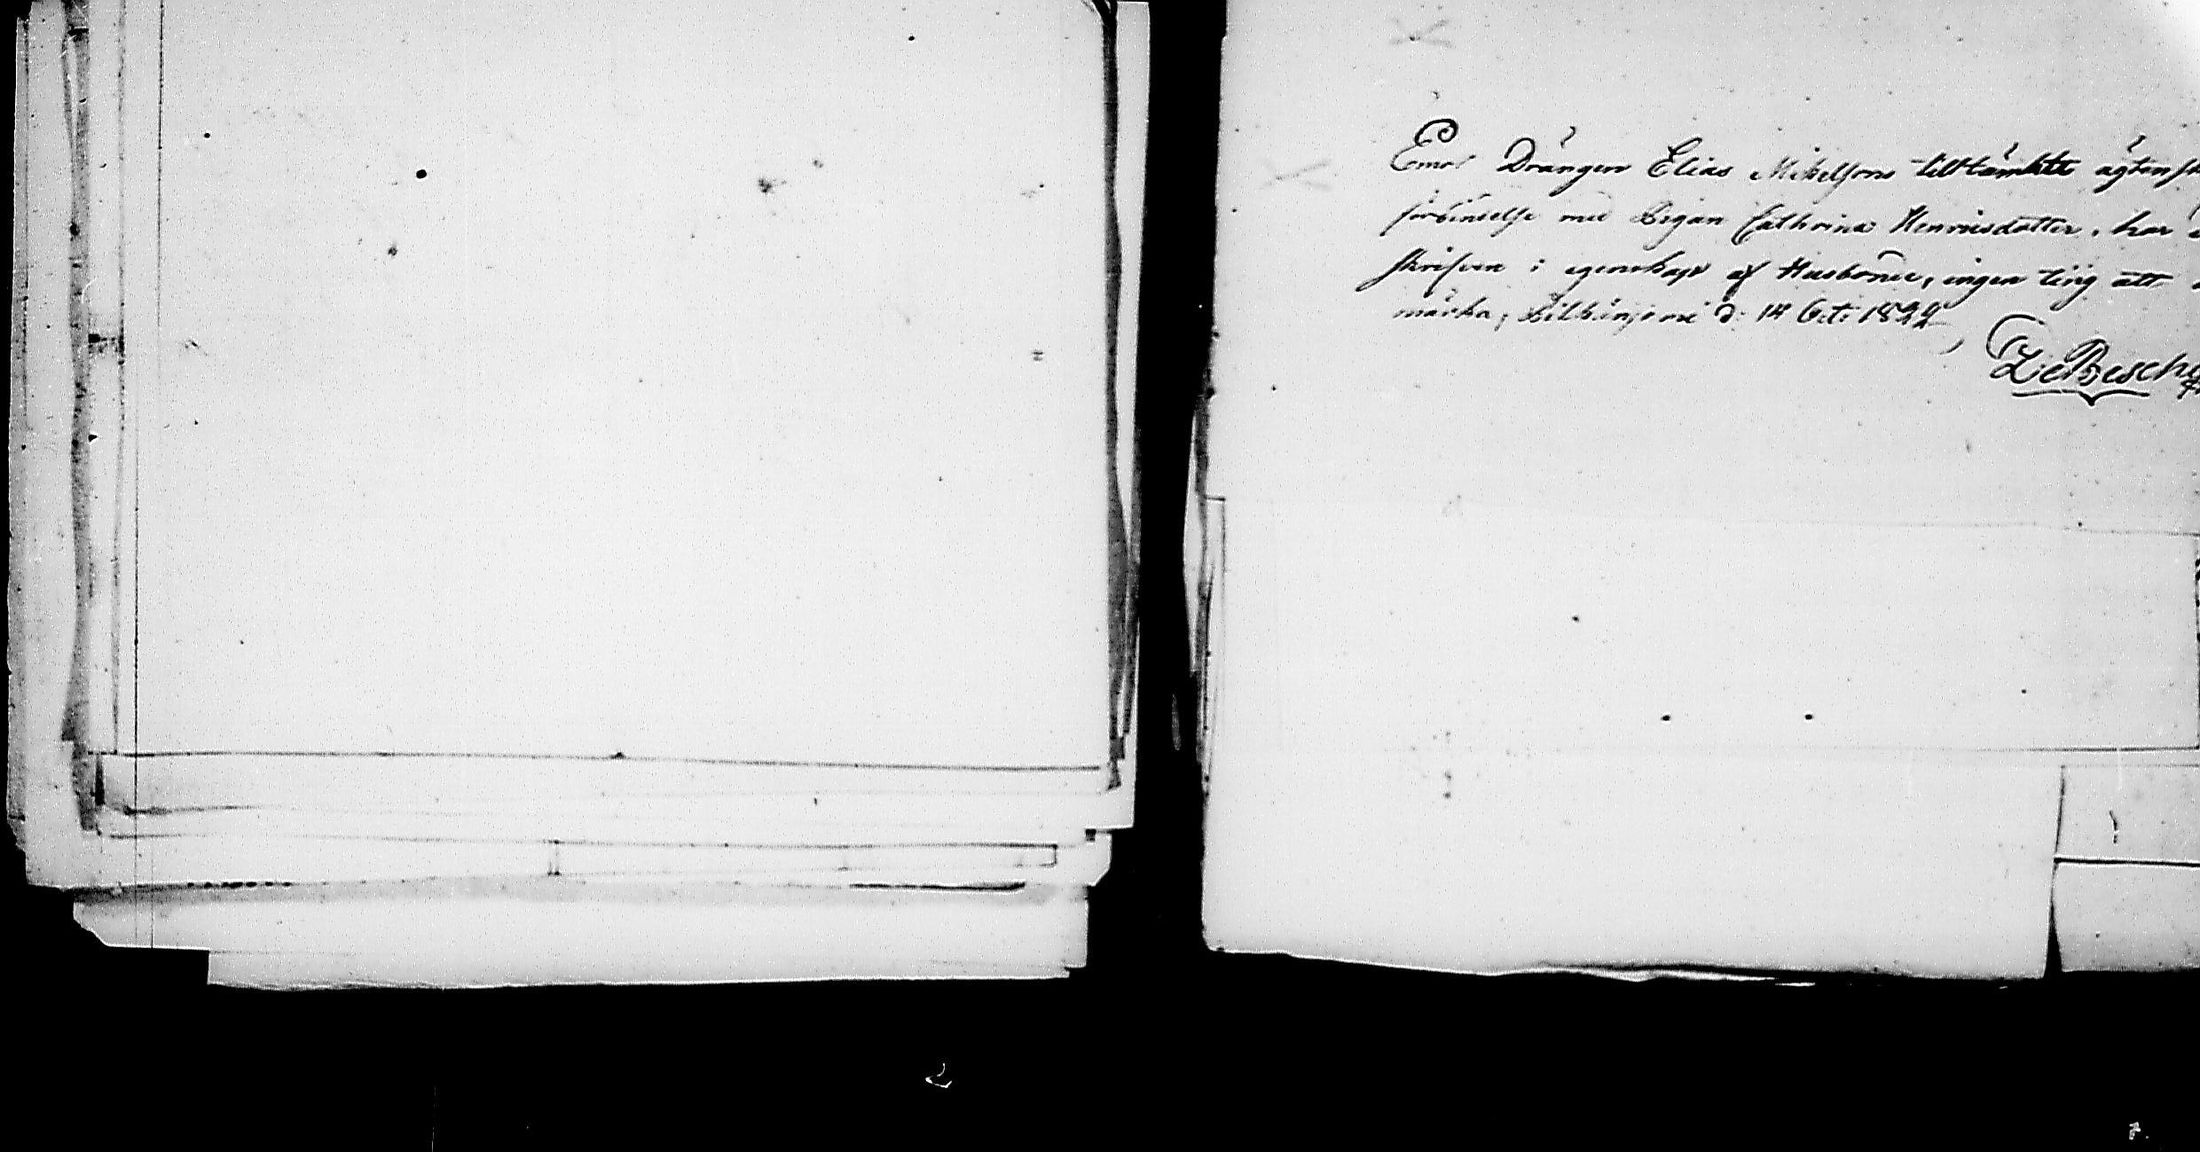 Emot Drängen Elias Mikelsons tilltänkte ägtensk
förbindelse med Pigan Cathrina Henricsdotter, har
skrifven i egenskap af Husbonde, ingen ting att
märka, d: 14 Oct: 1822
2
7.